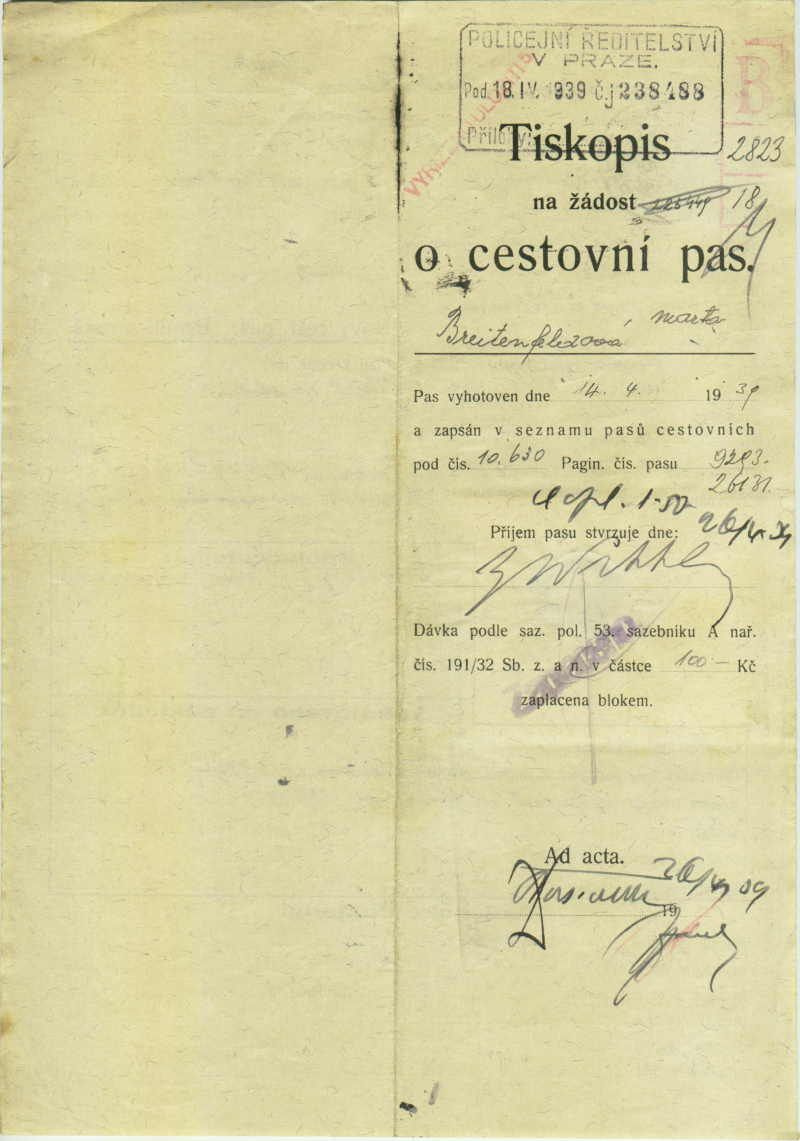 POLICEJNÍ ŘEDITELSTVÍ
V PRAZE.
Pod. 18. IV. 1939 č.j 238488
Přílohy
B
Tiskopis
2823
na žádost 18
o cestovní pas.
Breitenfeldová Marta
Pas vyhotoven dne 14. 4. 1939
a zapsán v seznamu pasů cestovních
pod čís. 10.630 Pagin. čís. pasu 9293.
26131
Příjem pasu stvrzuje dne: 26/4 39
Dávka podle saz. pol. 53. sazebníku A nař.
čís. 191/32 Sb. z. a n. v částce 100 — Kč
zaplacena blokem.
Ad acta.
19